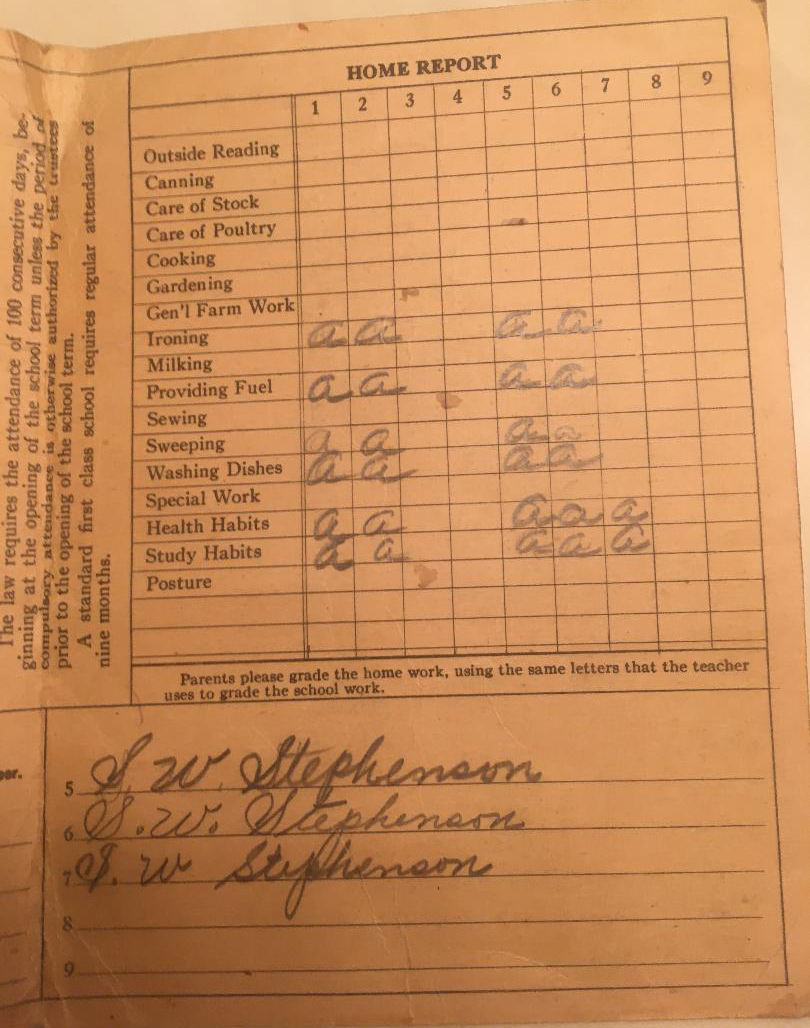 The law requires the attendance of 100 consecutive days, be-
ginning at the opening of the school term unless the period of
compulsory attendance is otherwise authorized by the trustees
prior to the opening of the school term.
A standard first class school requires regular attendance of
nine months.
HOME REPORT
1 2 3 4 5 6 7 8 9
Outside Reading
Canning
Care of Stock
Care of Poultry
Cooking
Gardening
Gen'l Farm Work
Ironing a a a a
Milking
Providing Fuel a a a a
Sewing
Sweeping a a a a
Washing Dishes a a a a
Special Work
Health Habits a a a a a
Study Habits a a a a a
Posture
Parents please grade the home work, using the same letters that the teacher
uses to grade the school work.
5 S. W. Stephenson
6 S. W. Stephenson
7 S. W Stephenson
8
9